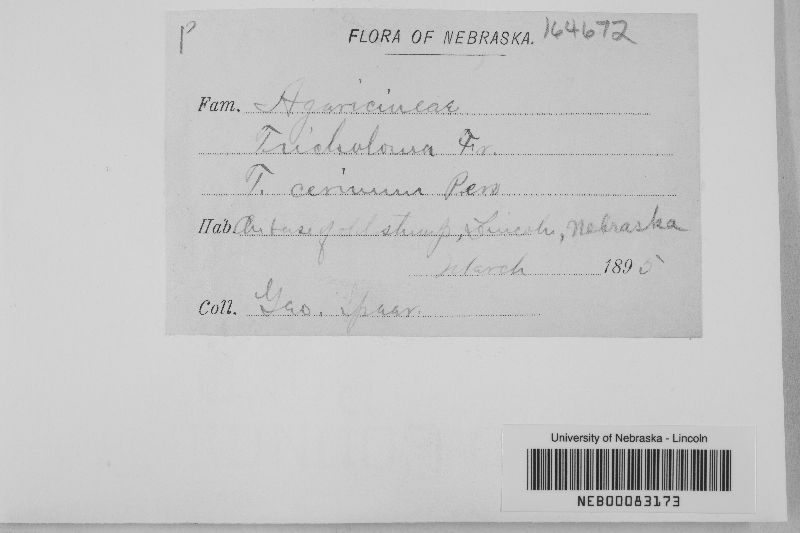 P
FLORA OF NEBRASKA. 164672
Fam. Agaricineae
Tricholoma Fr.
T. cerinum Pers
Hab. On base of old stump, Lincoln, Nebraska
March 1895
Coll. Geo. Spaar.
University of Nebraska - Lincoln
NEB00083173